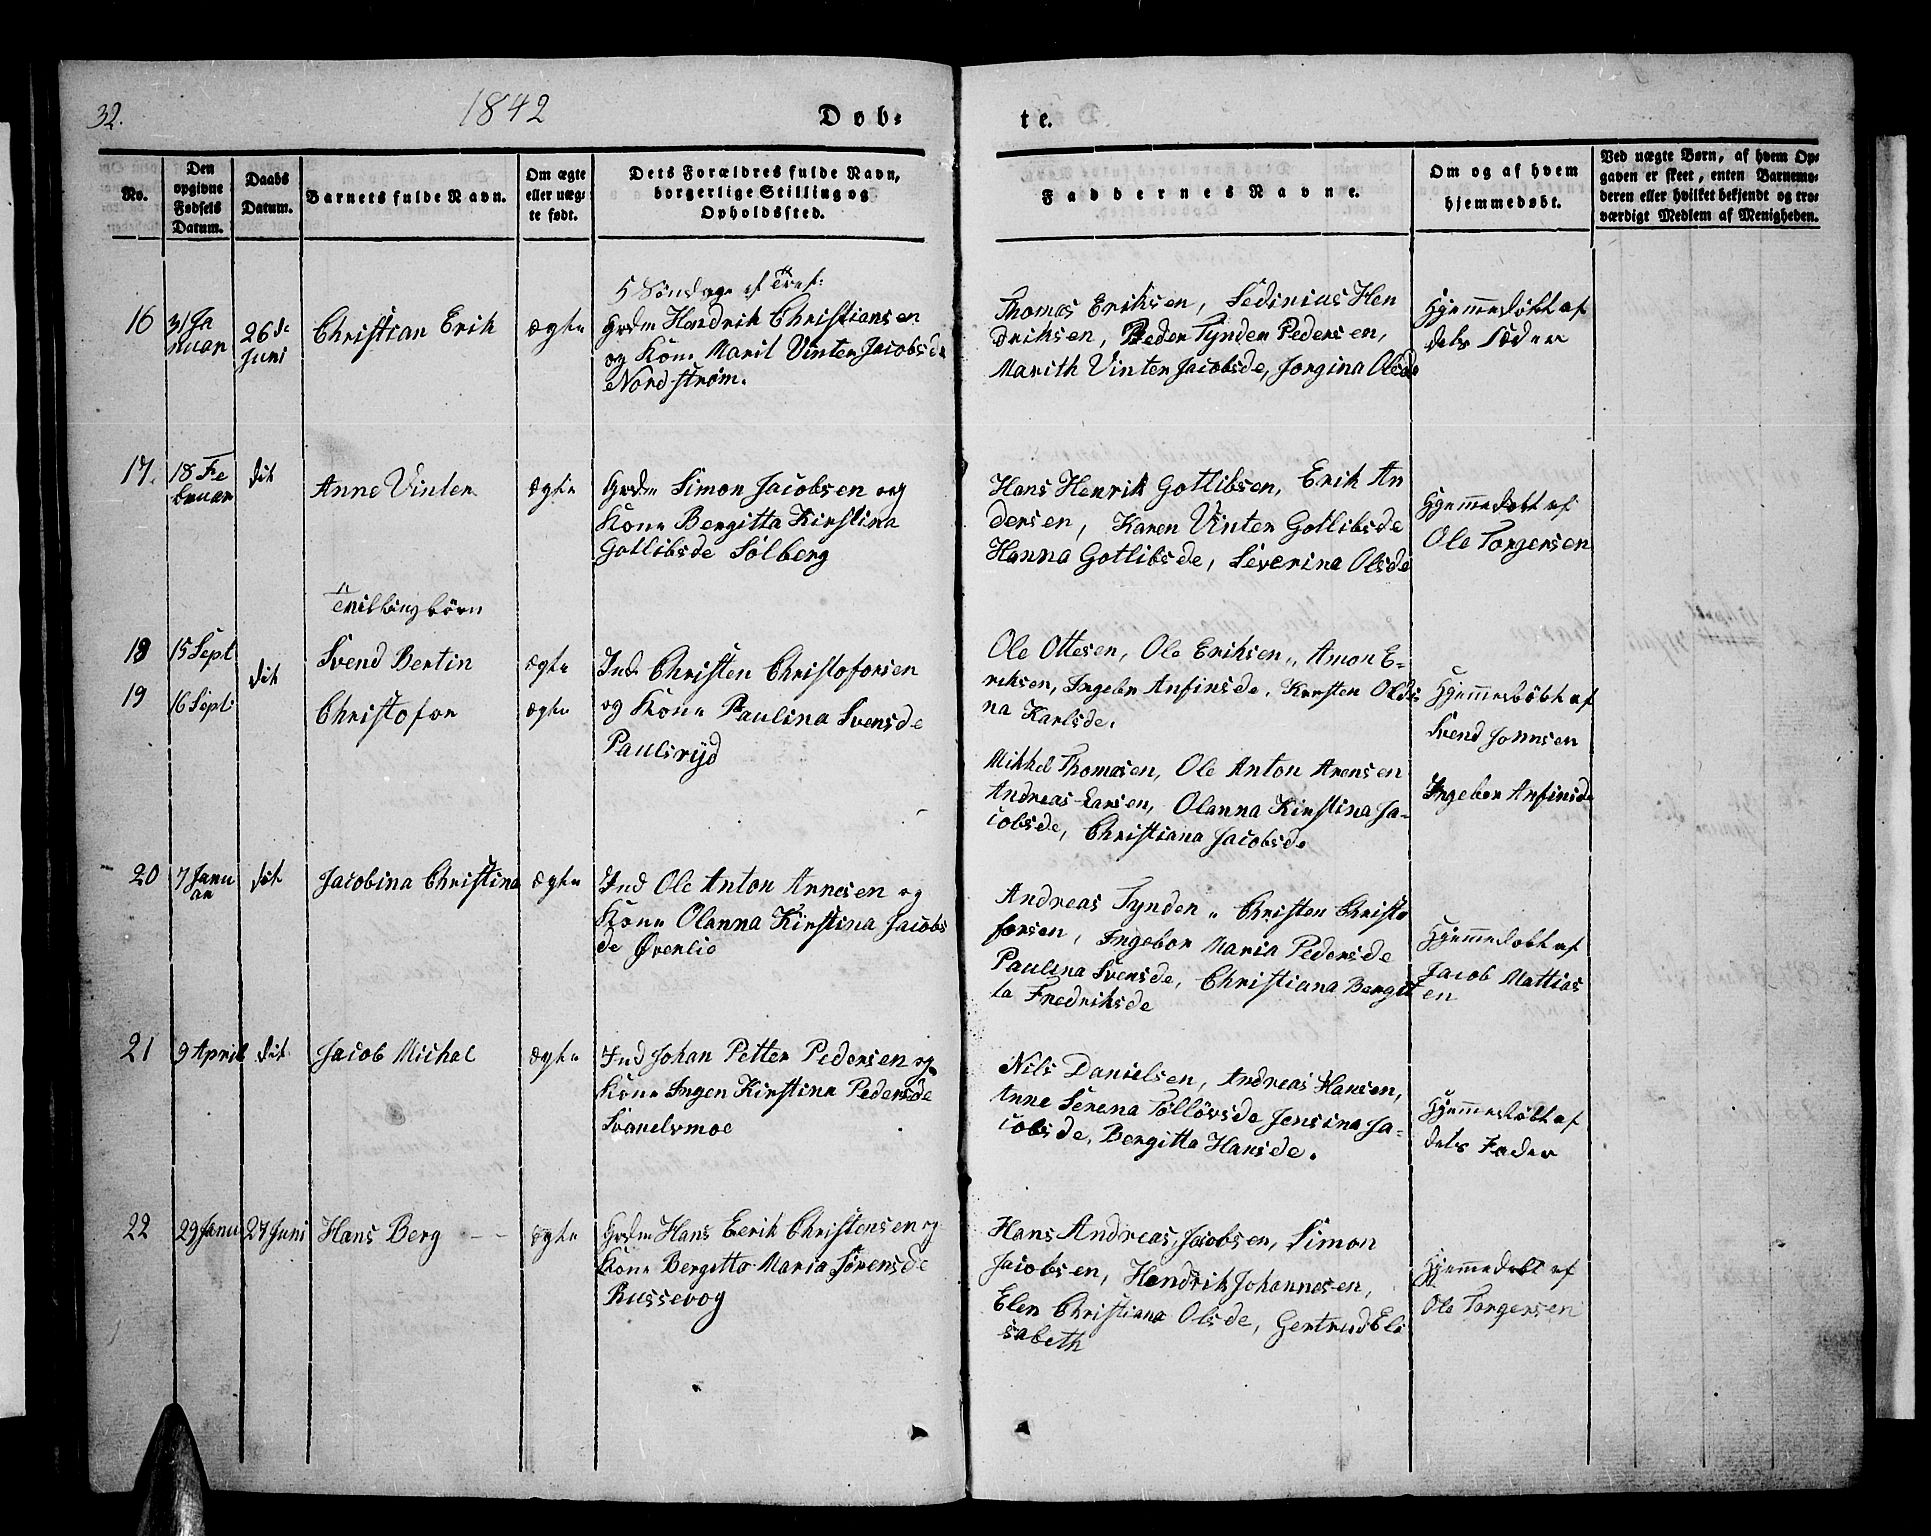 32.
1842
Dob-
te.
No.
Den
opgivne
Fødsels
Datum.
Daabs
Datum.
Barnets fulde Navn.
Om ægte
eller uæg-
te født.
Dets Forældres fulde Navn,
borgerlige Stilling og
Opholdssted.
Faddernes Navne.
Om og af hvem
hjemmedøbt.
Ved uægte Børn, af hvem Op-
gaven er skeet, enten Barnemo-
deren eller hvilket bekjendt og tro-
værdigt Medlem af Menigheden.
5 Søndag ef Tref:
16
31 Ja
nuar
26de
Juni
Christian Erik
ægte
Grdm Hendrik Christiansen
og Kone Marit Vinter Jacobsde
Nordstrøm.
Thomas Eriksen, Sedinius Hen
driksen, Peder Tynder Pedersen,
Marith Vinter Jacobsde, Jorgina Olsde
Hjemmedøbt af
dets Fader
17.
18 Fe
bruar
dit
Anne Vinter
ægte
Grdm Simon Jacobsen og
Kone Bergitta Kirstina
Gotlibsde Sølberg
Hans Henrik Gotlibsen, Erik An
dersen, Karen Vinter Gotlibsde
Hanna Gotlibsde, Severina Olsde
Hjemmedøbt af
Ole Torgersen
Tvillingbörn
18
15 Sept
dit
Svend Bertin
ægte
19
16 Sept
Christofor
ægte
Ind Christen Christoforsen
og Kone Paulina Svensde
Paulsryd
Ole Ottesen, Ole Eriksen, Amon E-
riksen, Ingebor Anfinsde, Kersten Olds
na Karlsde.
Hjemmedøbt af
Svend Jonnsen
Mikkel Thomasen, Ole Anton Arensen
Andreas Larsen, Olanna Kirstina Ja-
cobsde, Christiana Jacobsde
Ingebor Anfinsde
20
7 Janu
ar
dit
Jacobina Christina
ægte
Ind Ole Anton Arnesen og
Kone Olanna Kirstina Jacobs
de Øverlio
Andreas Tynden, Christen Christo
forsen, Ingebor Maria Pedersde
Paulina Svensde, Christiana Bergit
ta Fredriksde
Hjemmedøbt af
Jacob Mattias
en
21
9 April
dit
Jacob Michal
ægte
Ind Johan Petter Pedersen og
Kone Ingen Kirstina Pedersde
Svanelvmoe
Nils Danielsen, Andreas Hansen,
Anne Serena Töllövsde Jensina Ja-
cobsde, Bergitta Hansde.
Hjemmedøbt af
dets Fader
22
29 Janu
27 Juni
Hans Berg
ægte
Grdm Hans Eerik Christensen og
Kone Bergitta Maria Sörensde
Russevog
Hans Andreas Jacobsen, Simon
Jacobsen, Hendrik Johannesen,
Elen Christiana Olsde, Gertrud Eli
sabeth
Hjemmedøbt af
Ole Torgersen